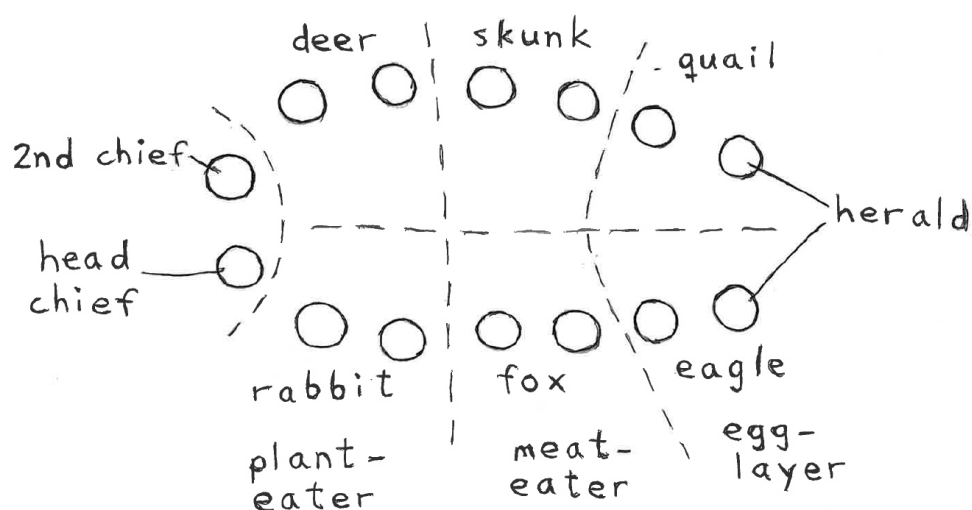 deer
skunk
quail
2nd chief
herald
head
chief
rabbit
fox
eagle
plant-
eater
meat-
eater
egg-
layer